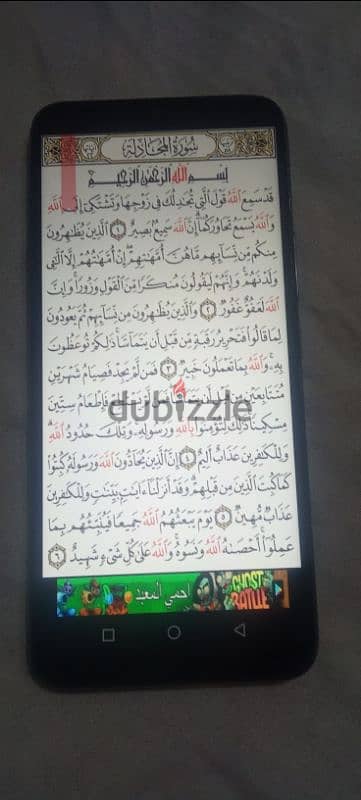 سُورَةُ المُجَادلة
بِسْمِ اللَّهِ الرَّحْمَٰنِ الرَّحِيمِ
قَدْ سَمِعَ اللَّهُ قَوْلَ الَّتِي تُجَٰدِلُكَ فِي زَوْجِهَا وَتَشْتَكِيٓ إِلَى اللَّهِ
وَاللَّهُ يَسْمَعُ تَحَاوُرَكُمَآ إِنَّ اللَّهَ سَمِيعٌ بَصِيرٌ ١ الَّذِينَ يُظَٰهِرُونَ
مِنكُم مِّن نِّسَآئِهِم مَّا هُنَّ أُمَّهَٰتِهِمْ إِنْ أُمَّهَٰتُهُمْ إِلَّا الَّٰٓـِٔي
وَلَدْنَهُمْ وَإِنَّهُمْ لَيَقُولُونَ مُنكَرًا مِّنَ الْقَوْلِ وَزُورًا وَإِنَّ
اللَّهَ لَعَفُوٌّ غَفُورٌ ٢ وَالَّذِينَ يُظَٰهِرُونَ مِن نِّسَآئِهِمْ ثُمَّ يَعُودُونَ
لِمَا قَالُوا فَتَحْرِيرُ رَقَبَةٍ مِّن قَبْلِ أَن يَتَمَآسَّا ذَٰلِكُمْ تُوعَظُونَ
بِهِ وَاللَّهُ بِمَا تَعْمَلُونَ خَبِيرٌ ٣ فَمَن لَّمْ يَجِدْ فَصِيَامُ شَهْرَيْنِ
مُتَتَابِعَيْنِ مِن قَبْلِ أَن يَتَمَآسَّا فَمَن لَّمْ يَسْتَطِعْ فَإِطْعَامُ سِتِّينَ
dubizzle
مِسْكِينًا ذَٰلِكَ لِتُؤْمِنُوا بِاللَّهِ وَرَسُولِهِ وَتِلْكَ حُدُودُ اللَّهِ
وَلِلْكَٰفِرِينَ عَذَابٌ أَلِيمٌ ٤ إِنَّ الَّذِينَ يُحَآدُّونَ اللَّهَ وَرَسُولَهُ كُبِتُوا
كَمَا كُبِتَ الَّذِينَ مِن قَبْلِهِمْ وَقَدْ أَنزَلْنَآ ءَايَٰتٍ بَيِّنَٰتٍ وَلِلْكَٰفِرِينَ
عَذَابٌ مُّهِينٌ ٥ يَوْمَ يَبْعَثُهُمُ اللَّهُ جَمِيعًا فَيُنَبِّئُهُم بِمَا
عَمِلُوٓا أَحْصَىٰهُ اللَّهُ وَنَسُوهُ وَاللَّهُ عَلَىٰ كُلِّ شَيْءٍ شَهِيدٌ ٦
احمي المعبد
GHOST
BATTLE